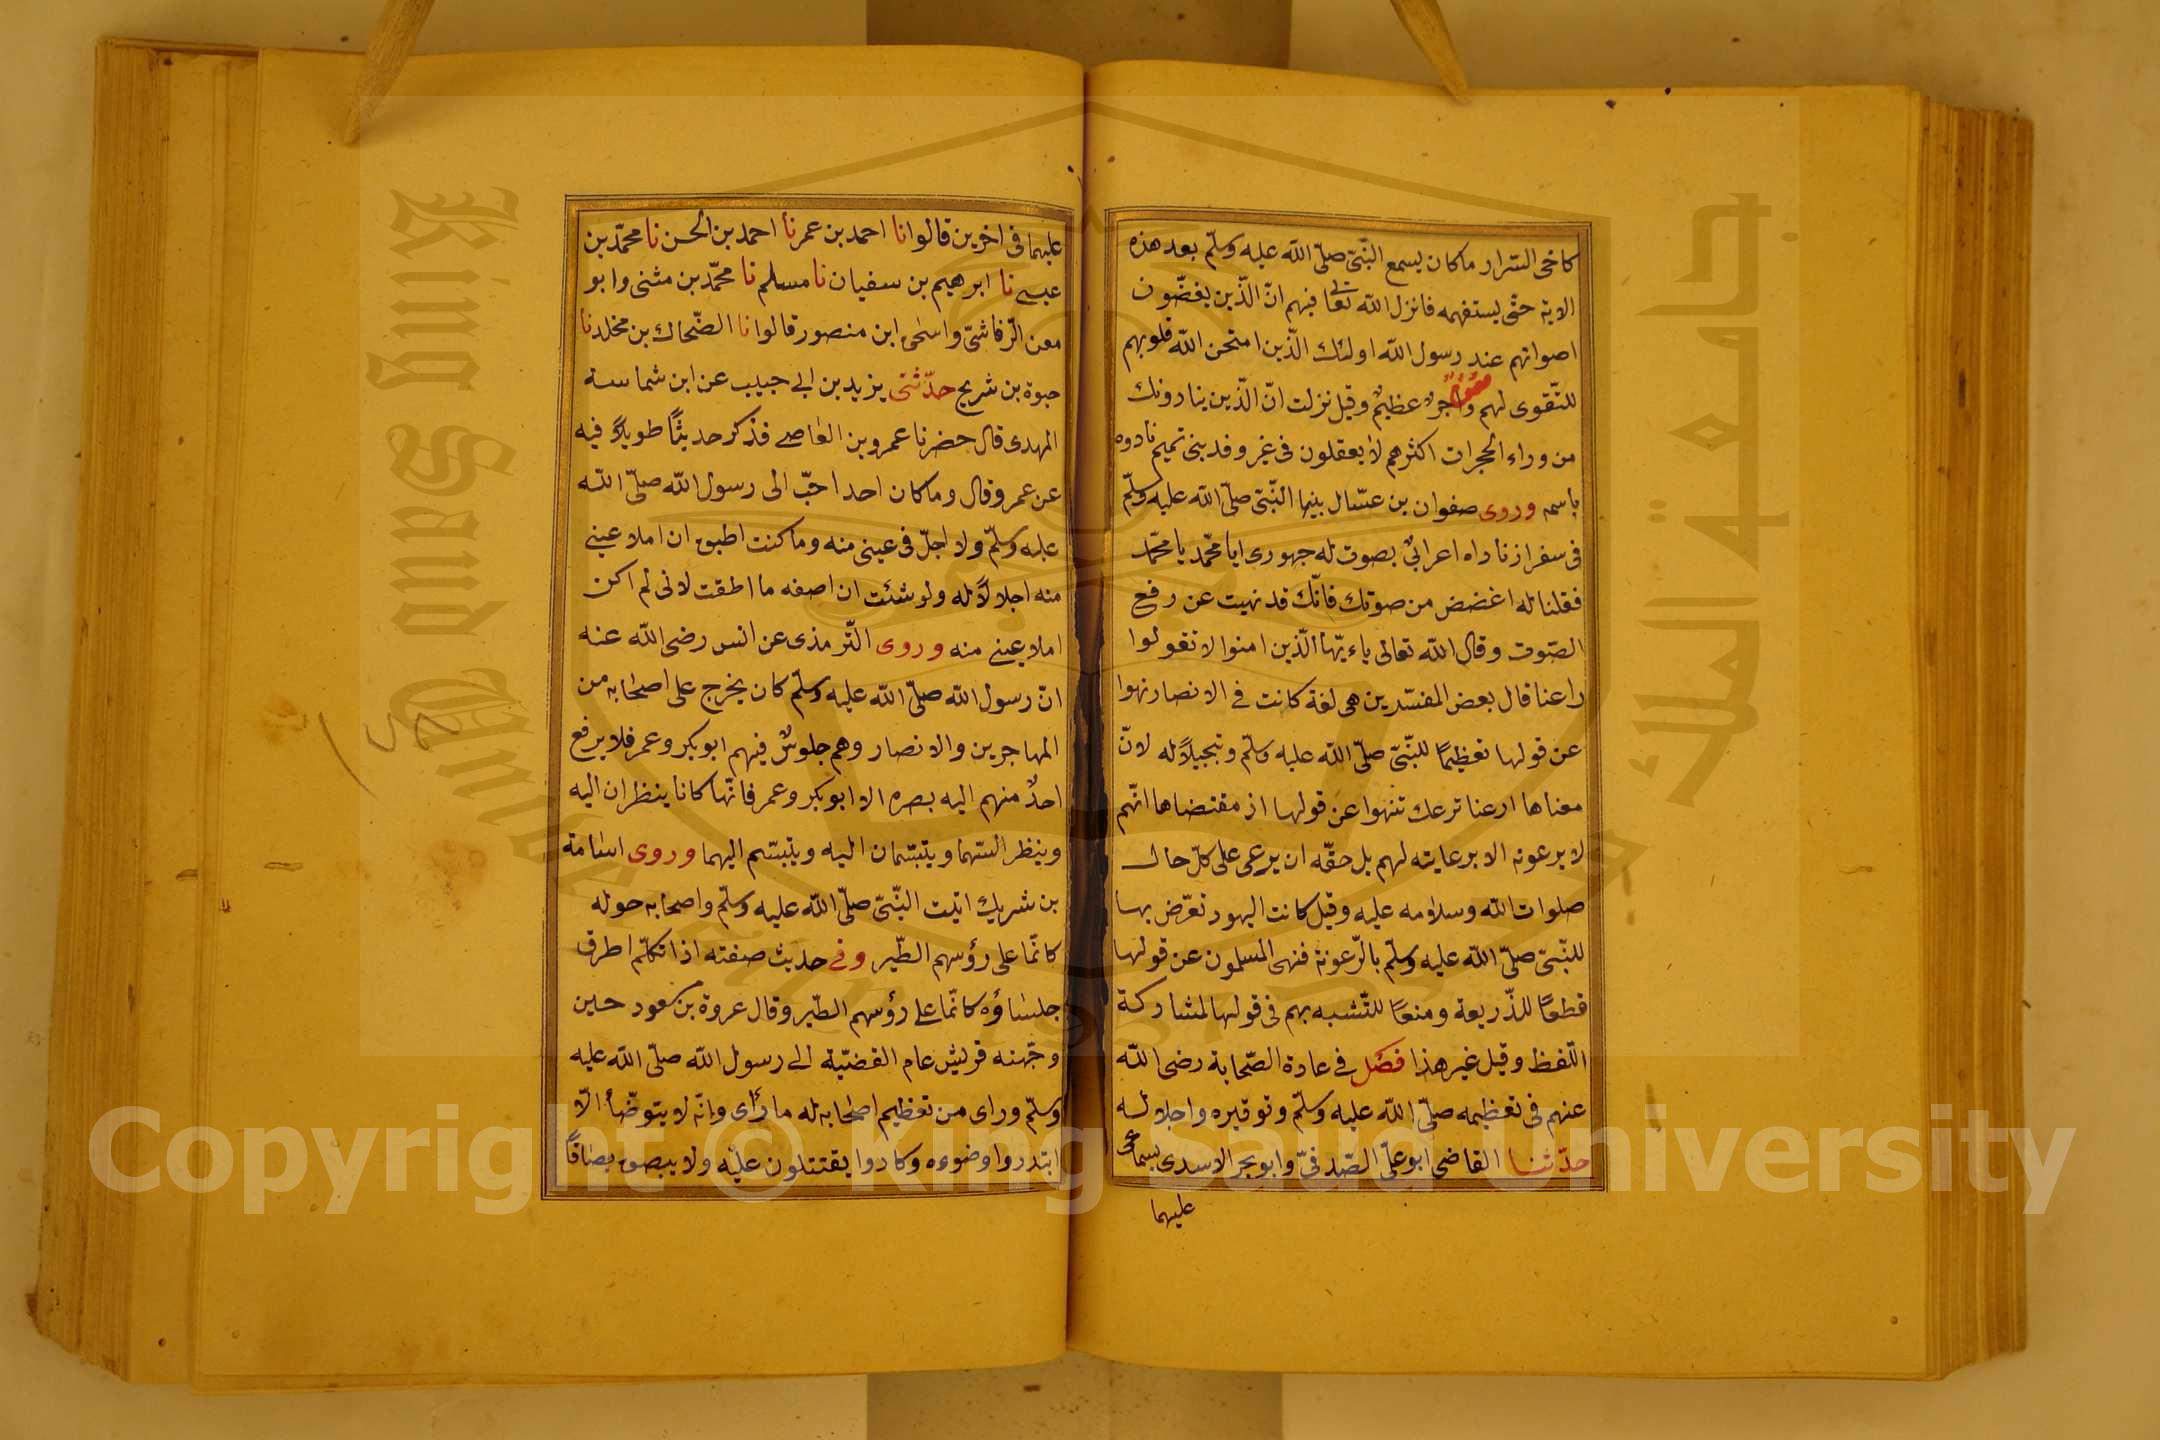 كاخى السرار ما كان يسمع النّبىّ صلّى الله عليه وسلّم بعد هذه
الاية حتّى يستفهمه فانزل الله تعالى فيهم انّ الّذين يغضّون
اصواتهم عند رسول الله اولئك الّذين امتحن الله قلوبهم
للتّقوى لهم مغفرة واجرٌ عظيمٌ وقيل نزلت انّ الّذين ينادونك
من وراء الحجرات اكثرهم لا يعقلون فى غير وفد بنى تميم نادوه
باسمه وروى صفوان بن عسّال بينها النّبىّ صلّى الله عليه وسلّم
فى سفر اذ ناداه اعرابىٌ بصوت له جهورى ايا محمّد يا محمّد
فقلنا له اغضض من صوتك فانّك قد نهيت عن رفع
الصّوت وقال الله تعالى ياءيّها الّذين امنوا لا تقولوا
راعنا قال بعض المفسّرين هى لغة كانت فى الانصار نهوا
عن قولها تعظيمًا للنّبىّ صلّى الله عليه وسلّم وتبجيلاً له لانّ
معناها ارعنا نرعك تنهوا عن قولها اذ مقتضاها انّهم
لا يرعونه الا برعايته لهم بل حقّه ان يرعى على كلّ حال
صلوات الله وسلامه عليه وقيل كانت اليهود تعرّض بها
للنّبىّ صلّى الله عليه وسلّم بالرّعونة فنهى المسلمون عن قولها
قطعًا للذّريعة ومنعًا للتّشبه بهم فى قولها لمشاركة
اللّفظ وقيل غير هذا فصل فى عادة الصّحابة رضى الله
عنهم فى تعظيمه صلّى الله عليه وسلّم وتوقيره واجلاله
حدّثنا القاضى ابو علىّ الصّدفىّ وابو بحر الاسدى بسماعى
عليهما
عليهما فى اخرين قالوا نا احمد بن عمر نا احمد بن الحسن نا محمّد بن
عيسى نا ابرهيم بن سفيان نا مسلم نا محمّد بن مثنى وابو
معن الرّقاشىّ واسحٰق ابن منصور قالوا نا الضّحاك بن مخلد نا
حيوة بن شريح حدّثنى يزيد بن ابى حبيب عن ابن شماسة
المهدى قال حضرنا عمرو بن العاصى فذكر حديثًا طويلاً فيه
عن عمرو قال وما كان احد احبّ الى رسول الله صلّى الله
عليه وسلّم ولا اجلّ فى عينى منه وما كنت اطيق ان املا عينى
منه اجلالاً له ولو شئت ان اصفه ما اطقت لانى لم اكن
املا عينى منه وروى التّرمذى عن انس رضى الله عنه
انّ رسول الله صلّى الله عليه وسلّم كان يخرج على اصحابه من
المهاجرين والانصار وهم جلوسٌ فيهم ابو بكر وعمر فلا يرفع
احدٌ منهم اليه بصره الا ابو بكر وعمر فانّها كانا ينظران اليه
وينظر اليهما ويتبسّمان اليه ويتبسّم اليهما وروى اسامة
بن شريك اتيت النّبىّ صلّى الله عليه وسلّم واصحابه حوله
كانّما على رؤسهم الطّير وفى حديث صفته اذا تكلّم اطرق
جلساؤه كانّما على رؤسهم الطّير وقال عروة بن مسعود حين
وجّهته قريش عام القضيّة الى رسول الله صلّى الله عليه
وسلّم وراى من تعظيم اصحابه له ما رأى وانّه لا يتوضّأ الّا
ابتدروا وضوءه وكادوا يقتتلون عليه ولا يبصق بصاقًا
King Saud University
جامعة الملك سعود
1957
Copyright © King Saud University